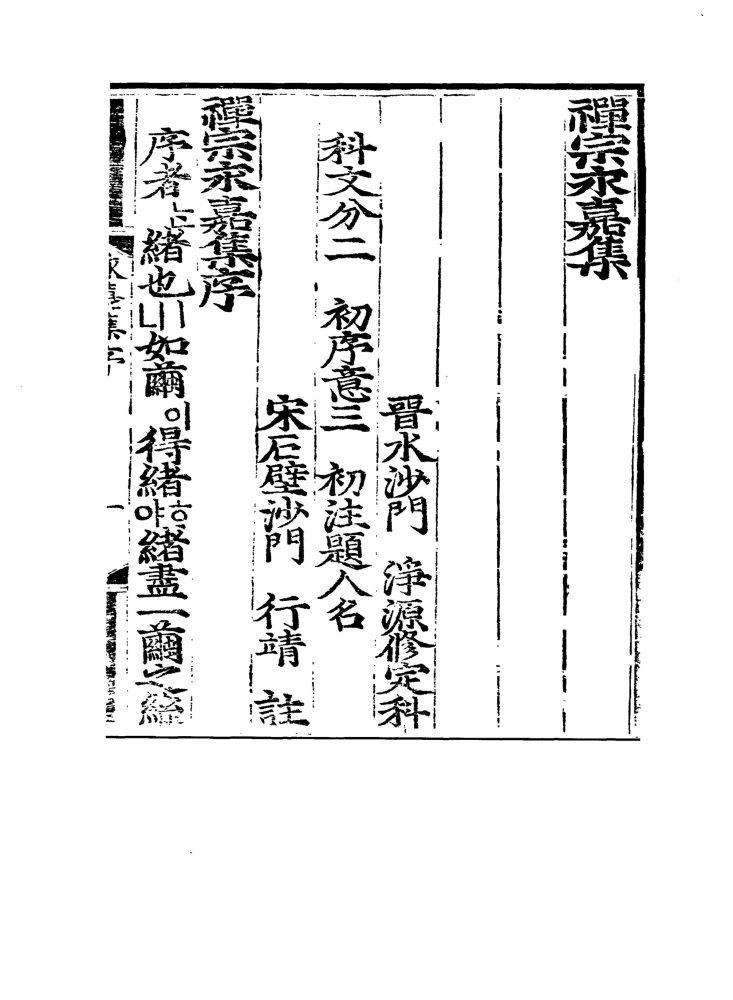 禪宗永嘉集
晉水沙門 淨源修定科
科文分二 初序意三 初注題人名
宋石壁沙門 行靖 註
禪宗永嘉集序
序者ᄂᆞᆫ緖也ㅣ니如繭이得緖ᄒᆞ야緖盡一繭之絲
永嘉集序 一